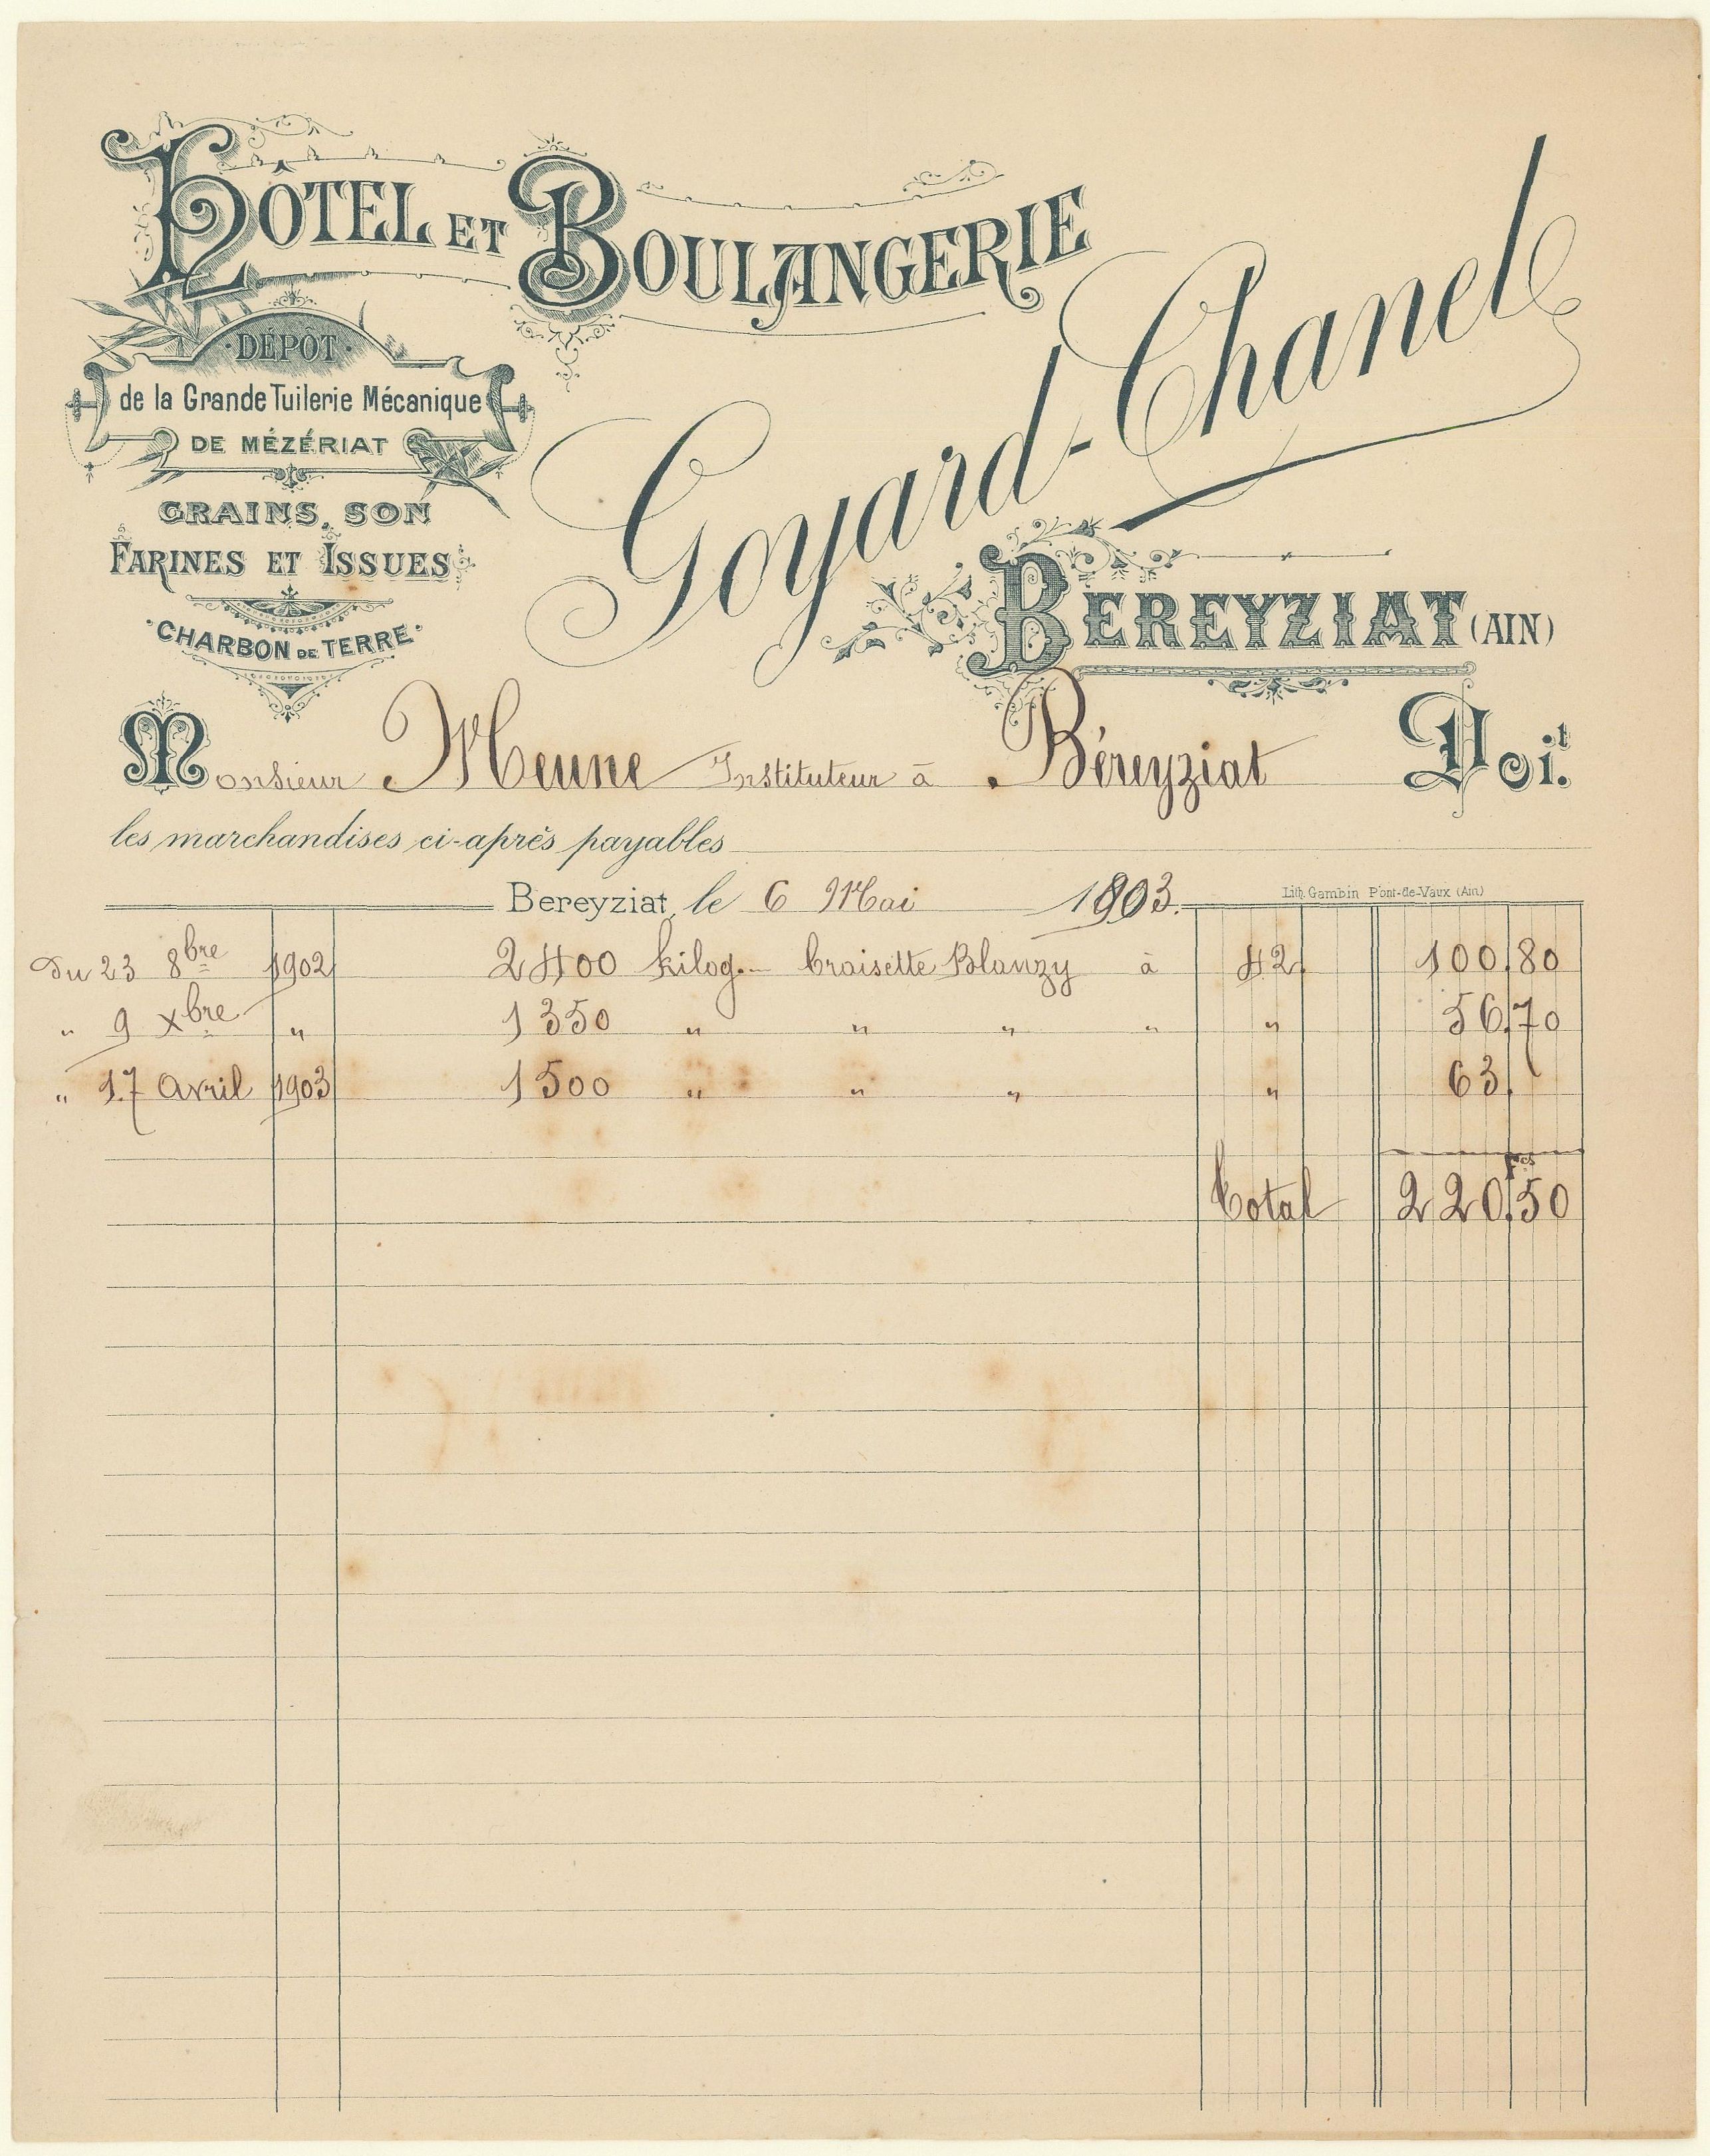 HÔTEL ET BOULANGERIE
DÉPÔT
de la Grande Tuilerie Mécanique
DE MÉZÉRIAT
GRAINS, SON
FARINES ET ISSUES
CHARBON DE TERRE
Goyard-Chanel
BEREYZIAT (AIN)
Monsieur Meune Instituteur à Béreyziat Doit
les marchandises ci-après payables
Bereyziat, le 6 Mai 1903.
Lith. Gambin Pont-de-Vaux (Ain)
Du 23 8bre 1902 2400 kilog. Craisette Blanzy à 42 100,80
" 9 Xbre " 1350 " " " " " 56,70
" 17 Avril 1903 1500 " " " " 63,
Total 220,50 Fcs